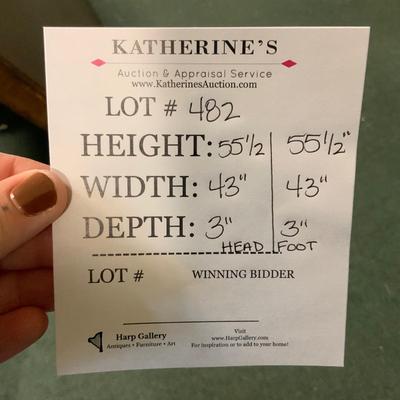 KATHERINE'S
Auction & Appraisal Service
www.KatherinesAuction.com
LOT # 482
HEIGHT: 55 1/2 55 1/2"
WIDTH: 43" 43"
DEPTH: 3" 3"
HEAD FOOT
LOT # WINNING BIDDER
Harp Gallery
Antiques • Furniture • Art
Visit
www.HarpGallery.com
For inspiration or to add to your home!